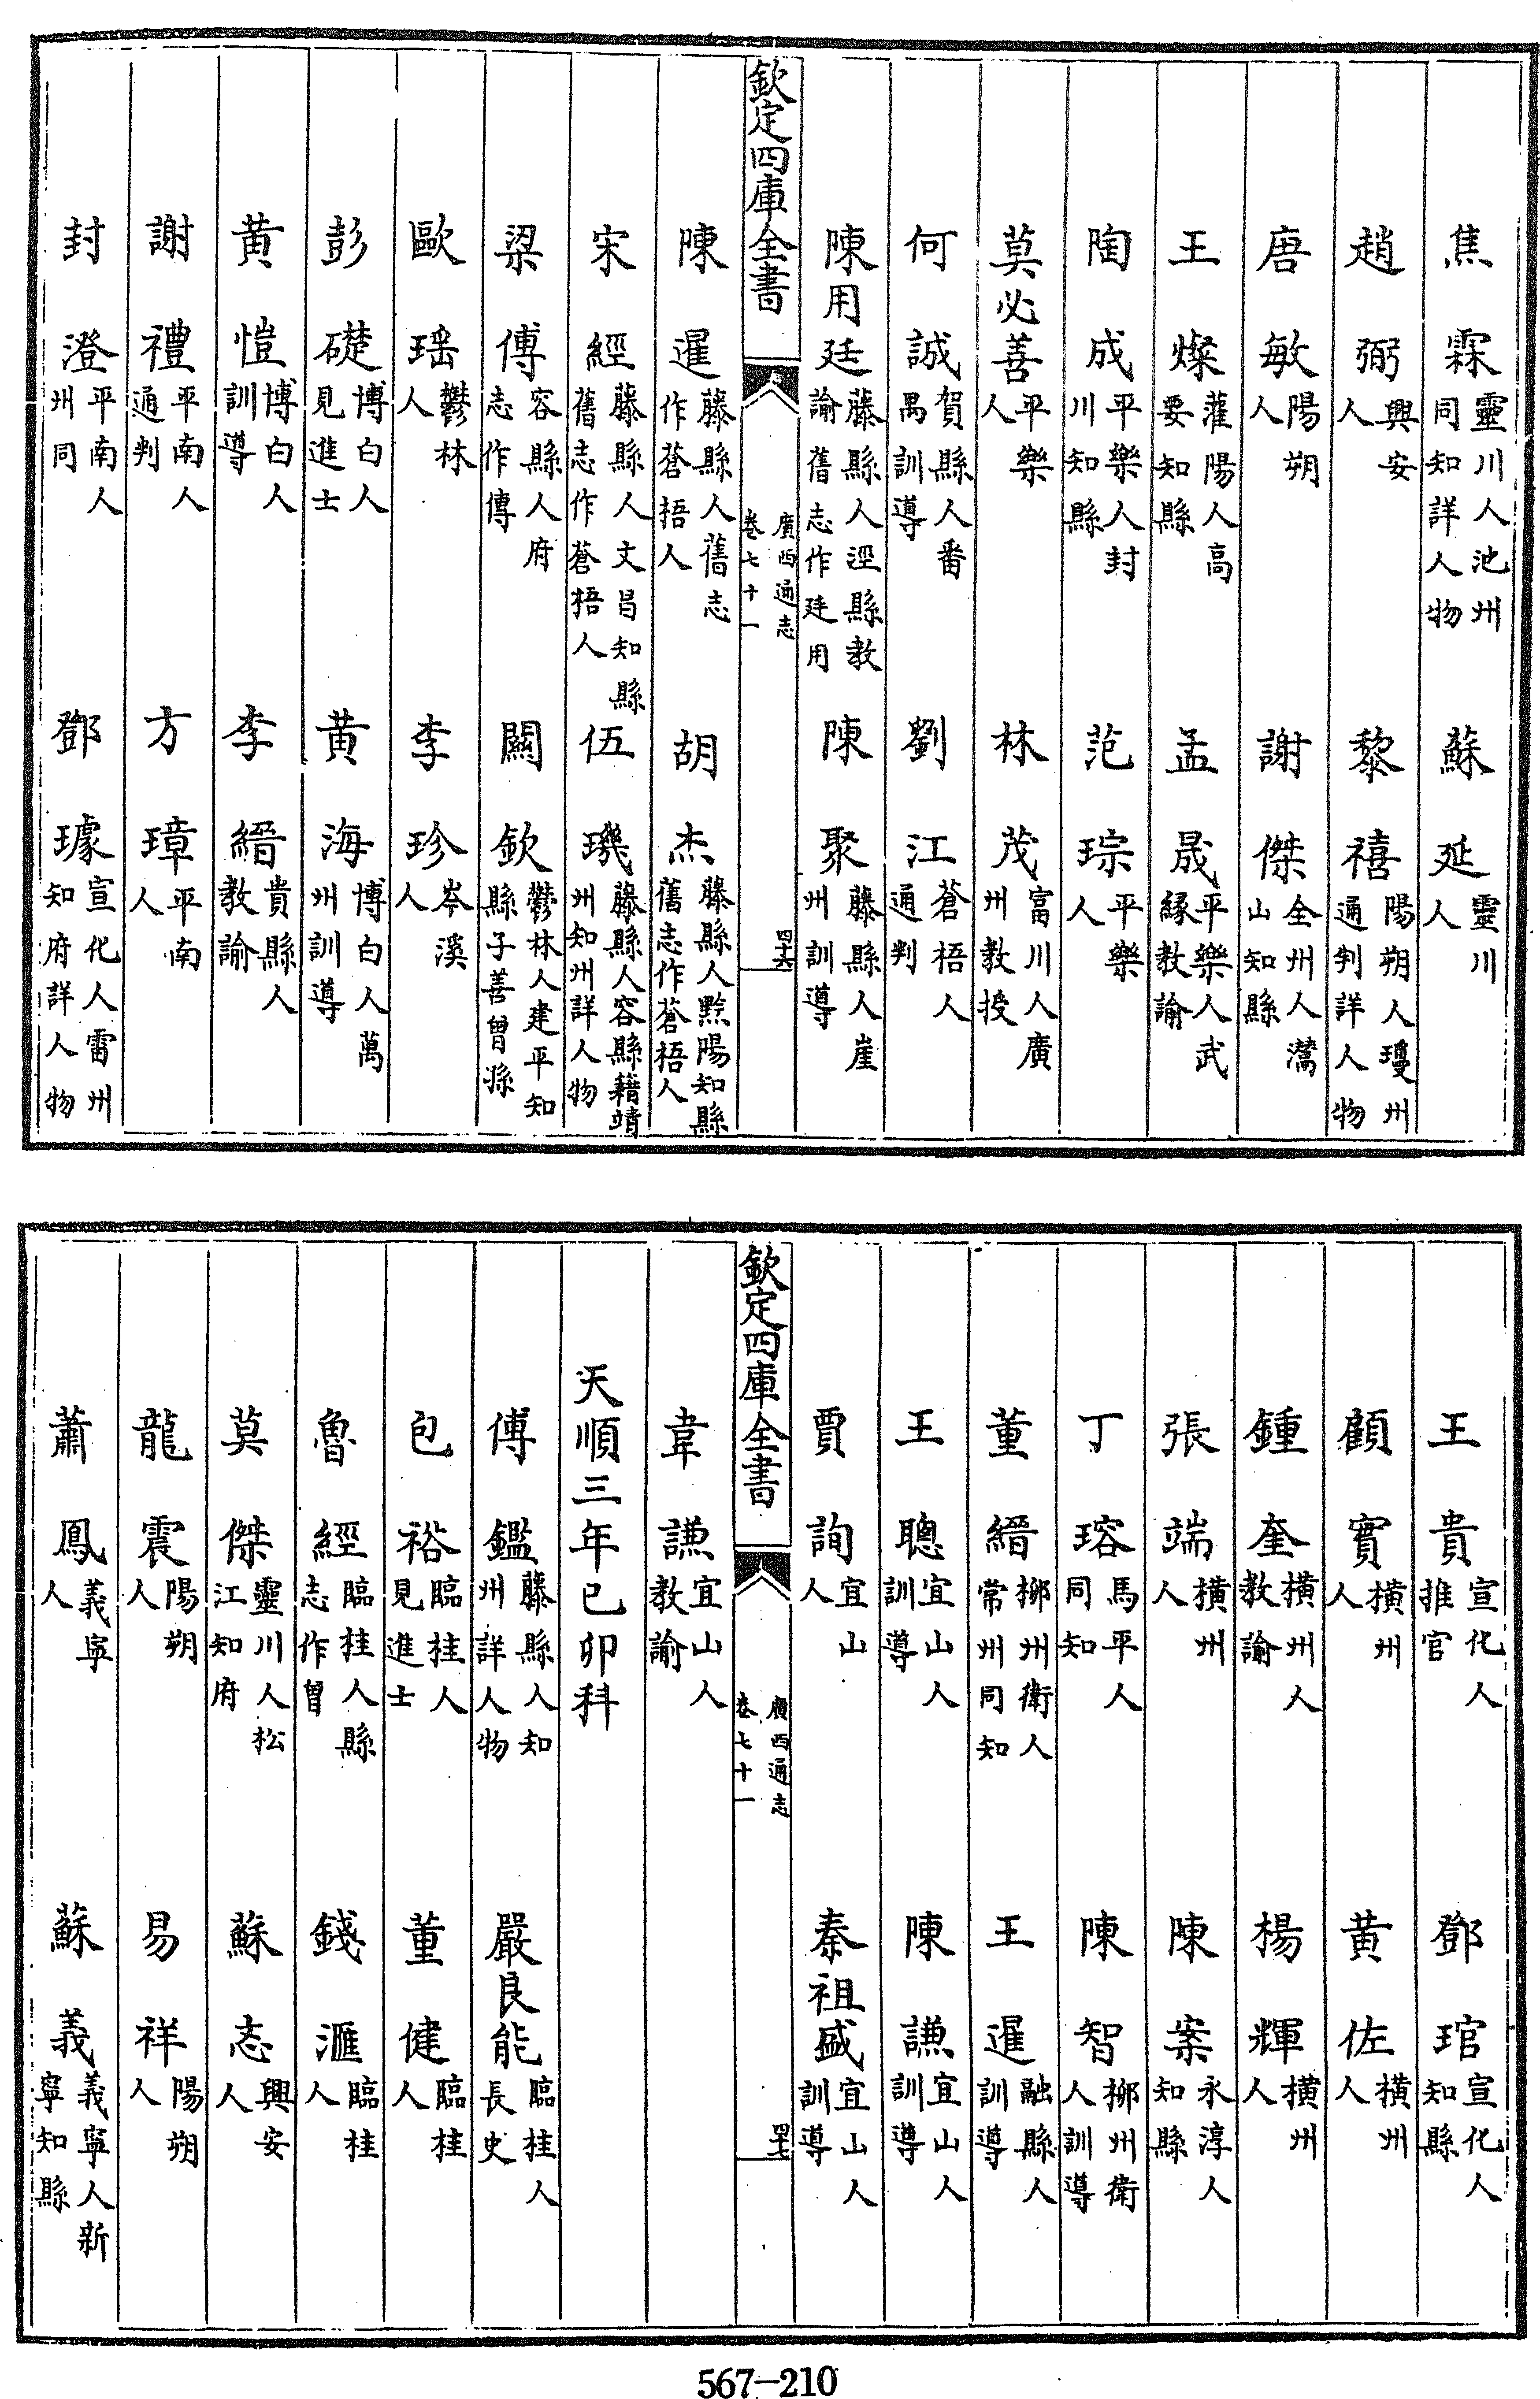 焦霖靈川人池州同知詳人物　蘇延靈川人
趙弼興安人　黎禧陽朔人瓊州通判詳人物
唐敏陽朔人　謝傑全州人灊山知縣
王燦灌陽人高要知縣　孟晟平樂人武緣教諭
陶成平樂人封川知縣　范琮平樂人
莫必善平樂人　林茂富川人廣州教授
何誠賀縣人番禺訓導　劉江蒼梧人通判
陳用廷藤縣人逕縣教諭舊志作廷用　陳聚藤縣人崖州訓導
欽定四庫全書　廣西通志卷七十一　四六
陳暹藤縣人舊志作蒼梧人　胡杰藤縣人黙陽知縣舊志作蒼梧人
宋經藤縣人文昌知縣舊志作蒼梧人　伍璣藤縣人容縣籍靖州知州詳人物
梁傅容縣人府志作傳　闗欽鬱林人建平知縣子善曾孫
歐瑶鬱林人　李珍岑溪人
彭礎博白人見進士　黄海博白人萬州訓導
黄愷博白人訓導　李縉貴縣人教諭
謝禮平南人通判　方璋平南人
封澄平南人州同　鄧璩宣化人雷州知府詳人物
王貴宣化人推官　鄧琯宣化人知縣
顧實橫州人　黄佐橫州人
鍾奎橫州人教諭　楊輝橫州人
張端橫州人　陳案永淳人知縣
丁瑢馬平人同知　陳智柳州衛人訓導
董縉柳州衛人常州同知　王暹融縣人訓導
王聰宜山人訓導　陳謙宜山人訓導
賈詢宜山人　秦祖盛宜山人訓導
欽定四庫全書　廣西通志卷七十一　四七
韋謙宜山人教諭
天順三年已卯科
傅鑑藤縣人知州詳人物　嚴良能臨桂人長史
包裕臨桂人見進士　董健臨桂人
魯經臨桂人縣志作曾　錢滙臨桂人
莫傑靈川人松江知府　蘇志興安人
龍震陽朔人　易祥陽朔人
蕭鳳義寧人　蘇義義寧人新寧知縣
567-210